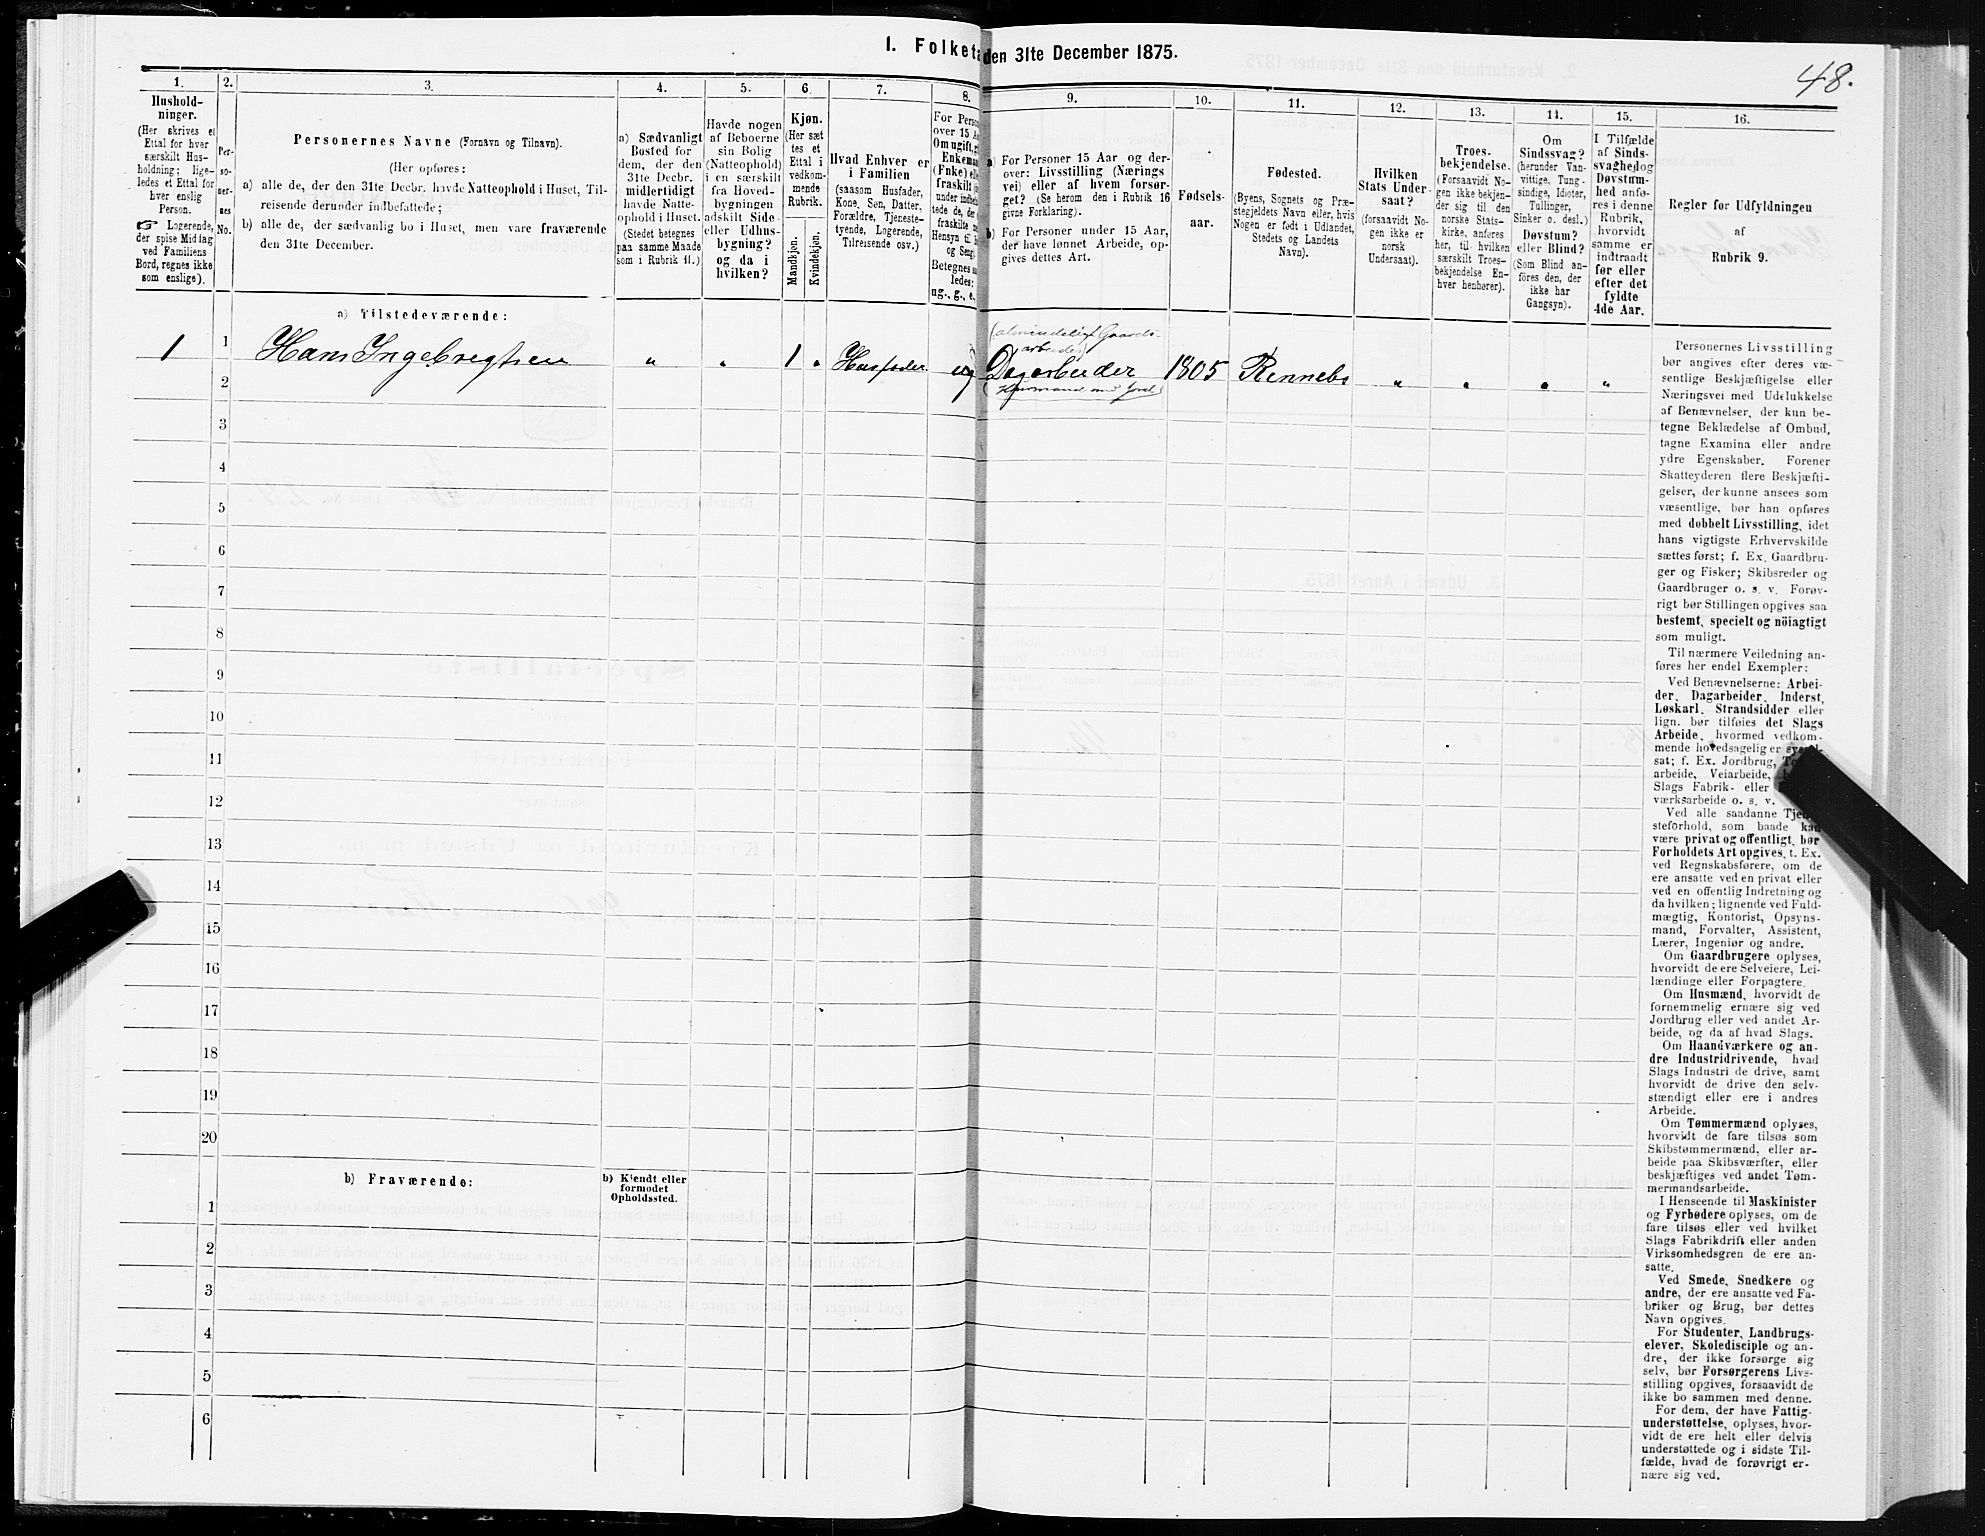 I. Folketæ den 31te December 1875.
48.
1.
2.
3.
4.
5.
6.
7.
8.
9.
10.
11.
12.
13.
14.
15.
16.
Hushold-
ninger.
(Her skrives et
Ettal for hver
særskilt Hus-
holdning; lige-
ledes et Ettal for
hver enslig
Person.
☞ Logerende,
der spise Middag
ved Familiens
Bord, regnes ikke
som enslige).
Per-
so-
ner-
nes
No.
Personernes Navne (Fornavn og Tilnavn).
(Her opføres:
a) alle de, der den 31te Decbr. havde Natteophold i Huset, Til-
reisende derunder indbefattede;
b) alle de, der sædvanlig bo i Huset, men vare fraværende
den 31te December.
a) Sædvanligt
Bosted for
dem, der den
31te Decbr.
midlertidigt
havde Natte-
ophold i Huset.
(Stedet betegnes
paa samme Maade
som i Rubrik 11.)
Havde nogen
af Beboerne
sin Bolig
(Natteophold)
i en særskilt
fra Hoved-
bygningen
adskilt Side-
eller Udhus-
bygning?
og da i
hvilken?
Kjøn.
(Her sæt-
tes et
Ettal i
vedkom-
mende
Rubrik.
Mandkjøn.
Kvindekjøn.
Hvad Enhver er
i Familien
(saasom Husfader,
Kone, Søn, Datter,
Forældre, Tjeneste-
tyende, Logerende,
Tilreisende osv.)
For Perso
over 15 Aa
Om ugift, g
Enkeman
(Enke) elle
fraskilt
under indbe
tede de, der
fraskilte
Hensyn til
og Seng.
Betegnes saa
ledes:
ug., g., e.
a) For Personer 15 Aar og der-
over: Livsstilling (Nærings
vei) eller af hvem forsør-
get? (Se herom den i Rubrik 16
givne Forklaring).
b) For Personer under 15 Aar,
der have lønnet Arbeide, op-
gives dettes Art.
Fødsels-
aar.
Fødested.
(Byens, Sognets og Præ-
stegjeldets Navn eller, hvis
Nogen er født i Udlandet,
Stedets og Landets
Navn).
Hvilken
Stats Under-
saat?
(forsaavidt No-
gen ikke er
norsk
Undersaat).
Troes-
bekjendelse.
(Forsaavidt No-
gen ikke bekjen-
der sig til den
norske Stats-
kirke, anføres
her, til hvilken
særskilt Troes-
bekjendelse En-
hver henhører).
Om
Sindssvag?
(herunder Van-
vittige, Tung-
sindige, Idioter,
Tullinger,
Sinker o. desl.)
Døvstum?
eller Blind?
(Som Blind an-
føres den, der
ikke har
Gangsyn).
I Tilfælde
af Sinds-
svaghed og
Døvstum-
hed anfø-
res i denne
Rubrik,
hvorvidt
samme er
indtraadt
før eller
efter det
fyldte
4de Aar.
Regler for Udfyldningen
af
Rubrik 9.
a) Tilstedeværende:
(almindeligt Gaards-
arbeide)
1 1 Hans Ingebregtsen „ „ 1 „ Husfader ug Dagarbeider 1805 Rennebo „ „ „ „
(Huusmand med Jord)
2
3
4
5
6
7
8
9
10
11
12
13
14
15
16
17
18
19
20
b) Fraværende:
b) Kjendt eller
formodet
Opholdssted.
1
2
3
4
5
6
Personernes Livsstilling
bør angives efter deres væ-
sentlige Beskjæftigelse eller
Næringsvei med Udelukkelse
af Benævnelser, der kun be-
tegne Beklædelse af Ombud,
tagne Examina eller andre
ydre Egenskaber. Forener
Skatteyderen flere Beskjæfti-
gelser, der kunne ansees som
væsentlige, bør han opføres
med dobbelt Livsstilling, idet
hans vigtigste Erhvervskilde
sættes først; f. Ex. Gaardbru-
ger og Fisker; Skibsreder og
Gaardbruger o. s. v. Forøv-
rigt bør Stillingen opgives saa
bestemt, specielt og nöiagtigt
som muligt.
Til nærmere Veiledning an-
føres her endel Exempler:
Ved Benævnelserne: Arbei-
der, Dagarbeider, Inderst,
Løskarl, Strandsidder eller
lign. bør tilføies det Slags
Arbeide, hvormed vedkom-
mende hovedsagelig er syssel-
sat; f. Ex. Jordbrug,
arbeide, Veiarbeide,
Slags Fabrik- eller
værksarbeide o. s. v.
Ved alle saadanne Tjene-
steforhold, som baade kan
være privat og offentligt, bør
Forholdets Art opgives, t. Ex.
ved Regnskabsførere, om de
ere ansatte ved en privat eller
ved en offentlig Indretning og
da hvilken; lignende ved Fuld-
mægtig, Kontorist, Opsyns-
mand, Forvalter, Assistent,
Lærer, Ingeniør og andre.
Om Gaardbrugere oplyses,
hvorvidt de ere Selveiere, Lei-
lændinge eller Forpagtere.
Om Husmænd, hvorvidt de
fornemmelig ernære sig ved
Jordbrug eller ved andet Ar-
beide, og da af hvad Slags.
Om Haandværkere og an-
dre Industridrivende, hvad
Slags Industri de drive, samt
hvorvidt de drive den selv-
stændigt eller ere i andres
Arbeide.
Om Tømmermænd oplyses,
hvorvidt de fare tilsøs som
Skibstømmermænd, eller ar-
beide paa Skibsværfter, eller
beskjæftiges ved andet Tøm-
mermandsarbeide.
I Henseende til Maskinister
og Fyrbødere oplyses, om de
fare tilsøs eller ved hvilket
Slags Fabrikdrift eller anden
Virksomhedsgren de ere an-
satte.
Ved Smede, Snedkere og
andre, der ere ansatte ved Fa-
briker og Brug, bør dettes
Navn opgives.
For Studenter, Landbrugs-
elever, Skoledisciple og an-
dre, der ikke forsørge sig
selv, bør Forsørgerens Livs-
stilling opgives, forsaavidt de
ikke bo sammen med denne.
For dem, der have Fattig-
understøttelse, oplyses, hvor-
vidt de ere helt eller delvis
understøttede og i sidste Til-
fælde, hvad de forøvrigt er-
nære sig ved.